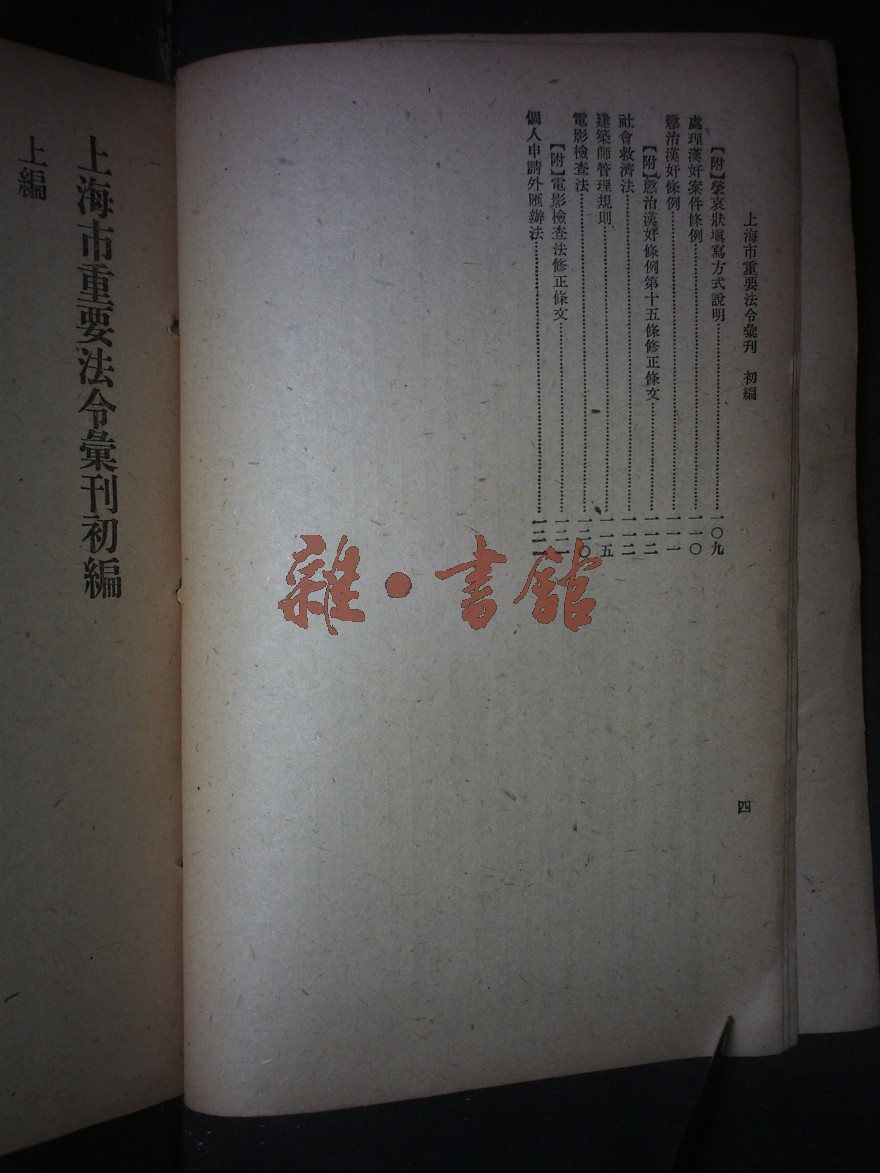 上海市重要法令彙刊 初編
【附】榮哀狀塡寫方式說明…………一〇九
處理漢奸案件條例…………一一〇
懲治漢奸條例…………一一一
【附】懲治漢奸條例第十五條修正條文…………一一二
社會救濟法…………一一二
建築師管理規則…………一一五
電影檢查法…………一二〇
【附】電影檢查法修正條文…………
個人申請外匯辦法…………
四
上海市重要法令彙刊初編
上編
雜·書館